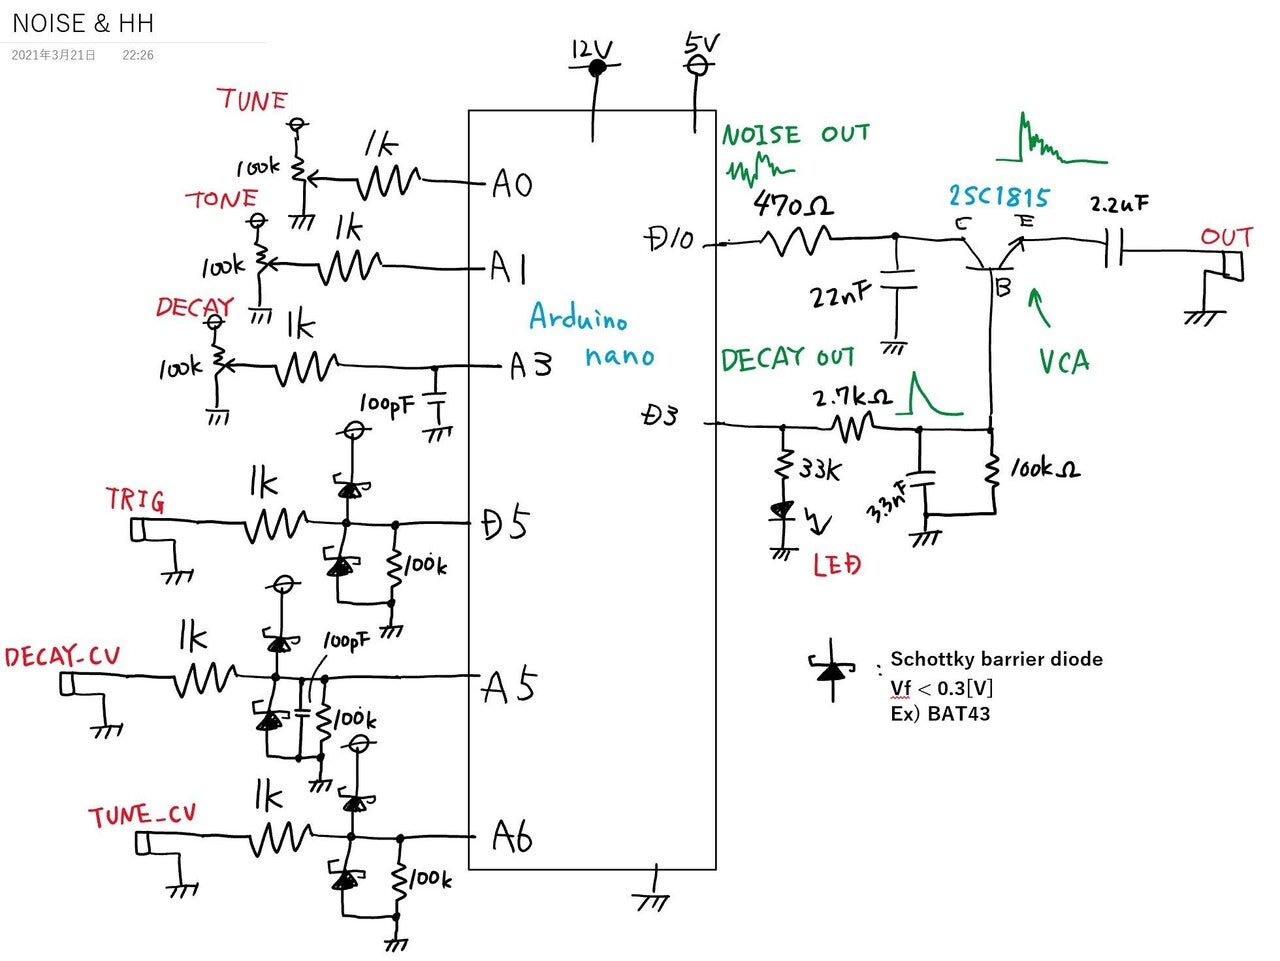 NOISE & HH
2021年3月21日 22:26
12V
5V
TUNE
100k
1k
A0
TONE
100k
1k
A1
DECAY
100k
1k
A3
100pF
TRIG
1k
100k
D5
DECAY_CV
1k
100pF
100k
A5
TUNE_CV
1k
100k
A6
Arduino
nano
NOISE OUT
D10
470Ω
22nF
2SC1815
C
E
B
2.2uF
OUT
VCA
DECAY OUT
D3
2.7kΩ
33K
LED
33nF
100kΩ
: Schottky barrier diode
Vf < 0.3[V]
Ex) BAT43